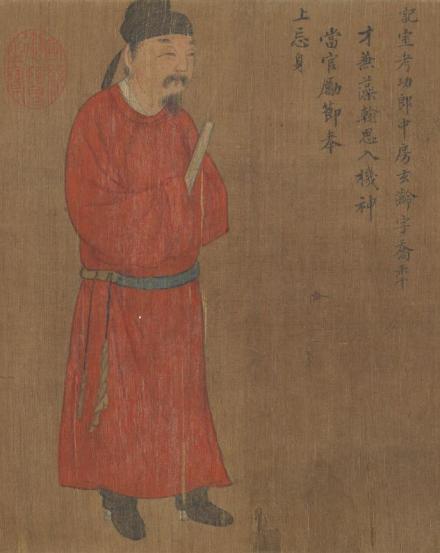 記室考功郎中房玄齡字喬年
才兼藻翰思入機神
當官勵節奉
上忘身